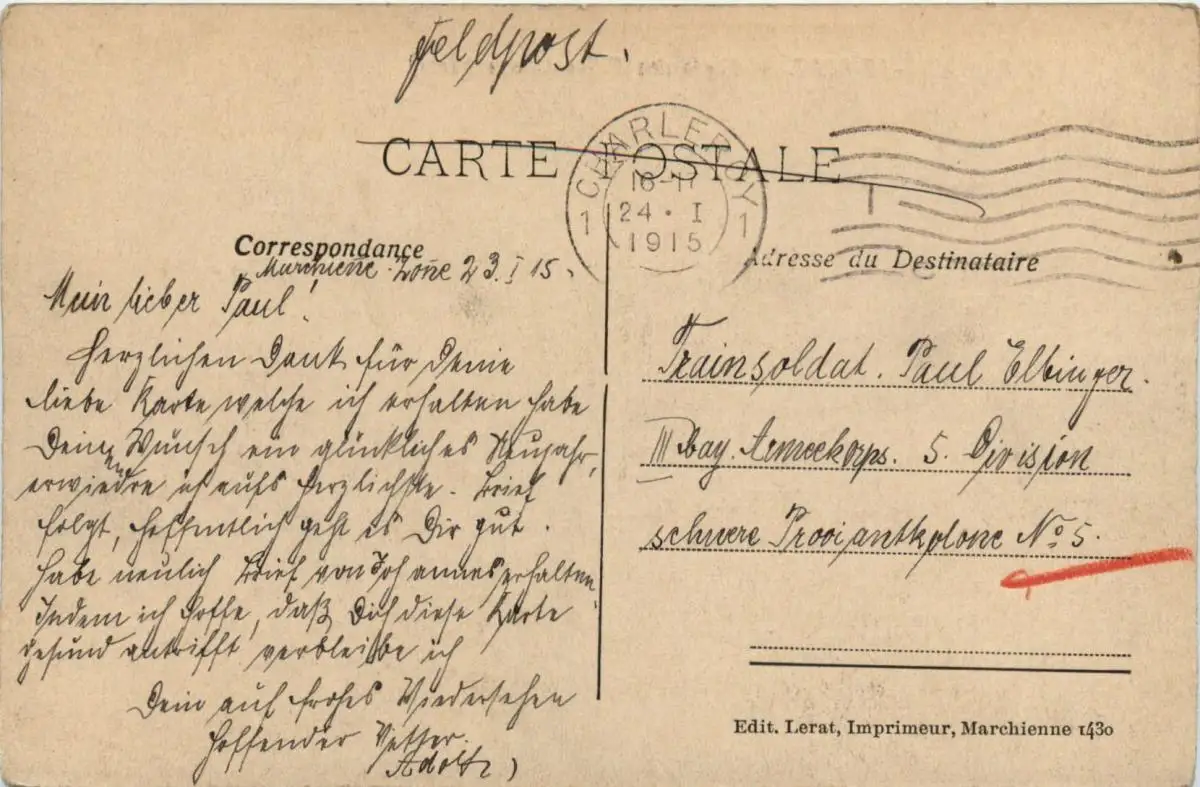 Feldpost.
CARTE POSTALE
1 CHARLEROY 1
24 · I
1915
Correspondance
Marchienne-Zone 23. I 15.
Mein lieber Paul!
Herzlichen Dank für Deine
liebe Karte welche ich erhalten habe
Dein Wunsch ein glückliches Neujahr,
erwiedre ich aufs herzlichste. Brief
folgt, hoffentlich geht es Dir gut.
Habe neulich Brief von Johannes erhalten.
Indem ich hoffe, daß Dich diese Karte
gesund antrifft verbleibe ich
Dein auf frohes Wiedersehen
hoffender Vetter.
Adolf
Adresse du Destinataire
Trainsoldat. Paul Elbinger.
III bay. Armeekorps. 5. Division
schwere Proviantkolone No 5.
Edit. Lerat, Imprimeur, Marchienne 1430